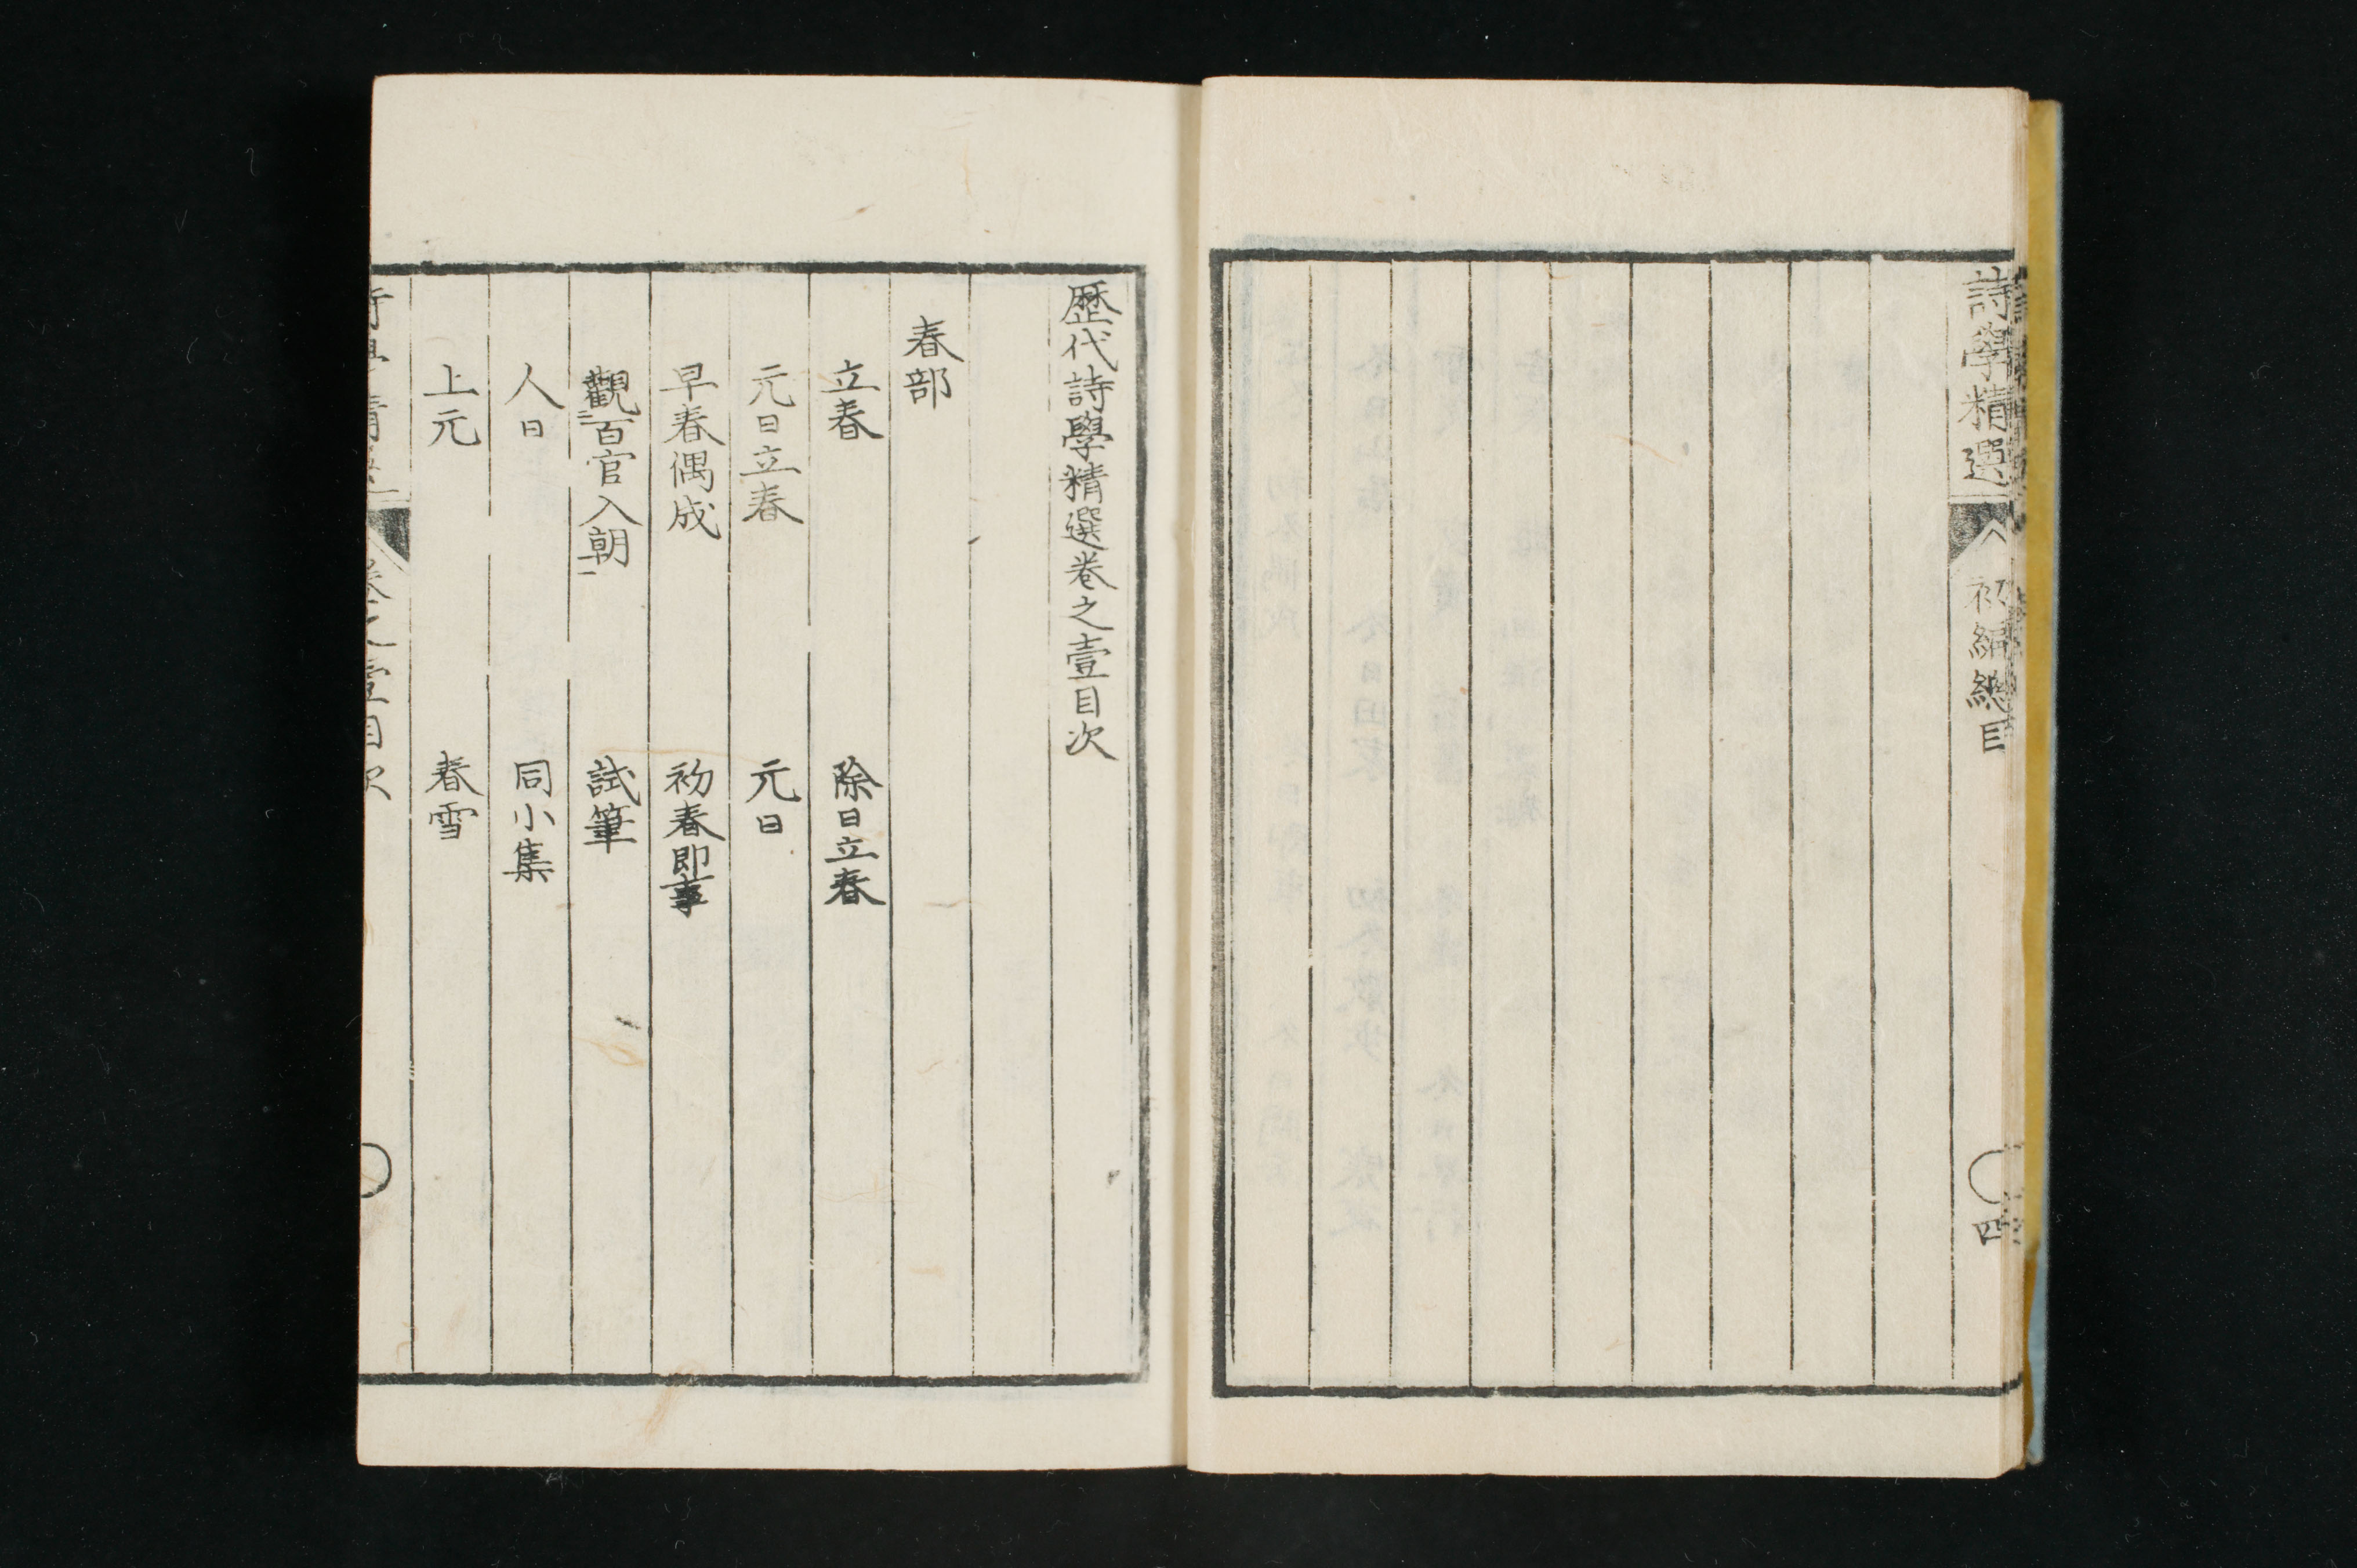 詩學精選
初編總目
四
歴代詩學精選卷之壹目次
春部
立春
除日立春
元日立春
元日
早春偶成
初春即事
觀百官入朝
試筆
人日
同小集
上元
春雪
卷之壹目次